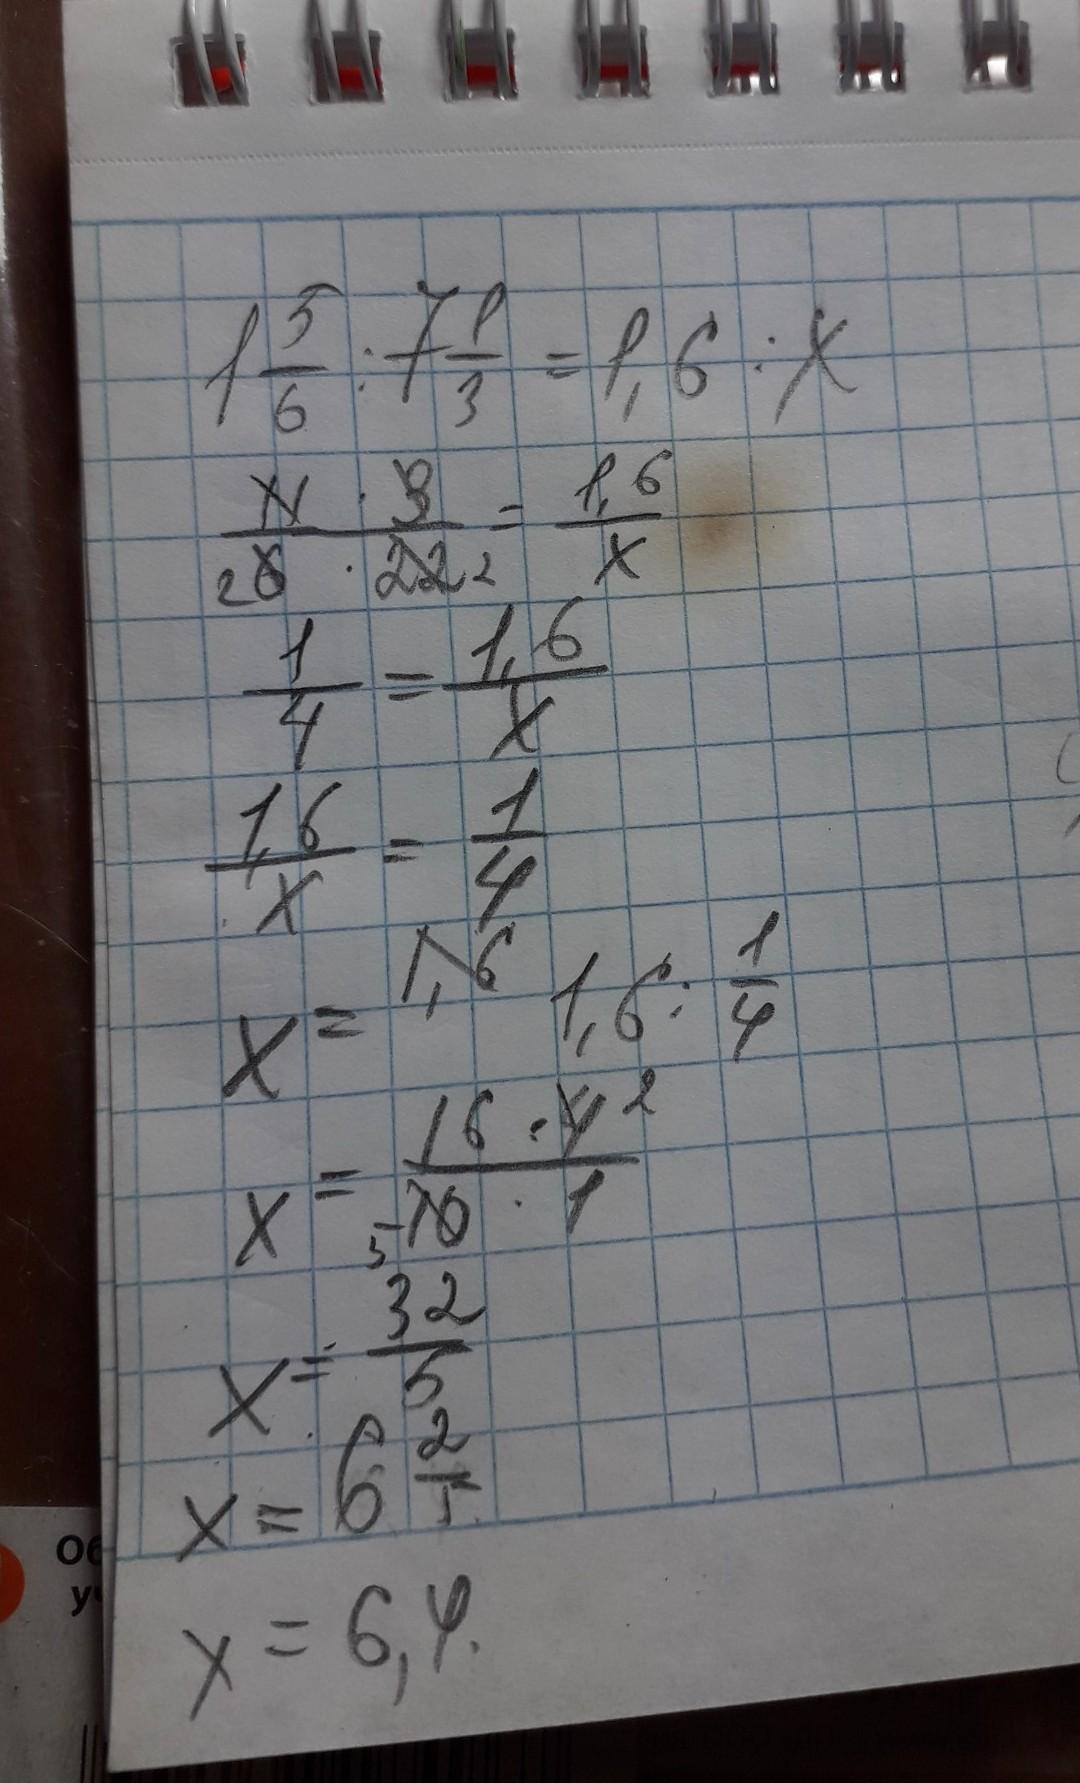 1 5/6 : 7 1/3 = 1,6 : x
11 · 3 / 2 6 · 22 2 = 1,6 / x
1/4 = 1,6/x
1,6/x = 1/4
x = 1,6 1,6 : 1/4
x = 16 · 4 2 / 5 10 · 1
x = 32/5
x = 6 2/5
x = 6,4.
Об
уч